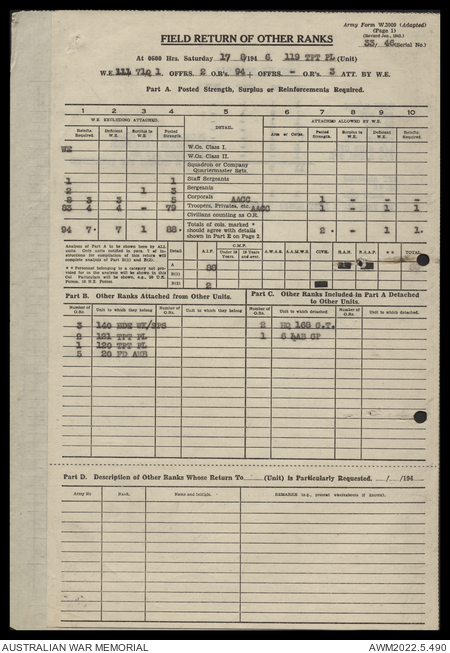 Army Form W.3009 (Adapted)
(Page 1)
(Revised Jan., 1945.)
33/ 46 (Serial No.)
FIELD RETURN OF OTHER RANKS
At 0600 Hrs. Saturday 17 8/194 6 119 TPT PL (Unit)
W.E. 111 71Q 1. OFFRS. 2 O.R's. 94+ OFFRS. - O.R's 3 ATT. BY W.E.
Part A. Posted Strength, Surplus or Reinforcements Required.
1 2 3 4 5 6 7 8 9 10
W.E. EXCLUDING ATTACHED. ATTACHED ALLOWED BY W.E.
Reinfts Required Deficient W.E. Surplus to W.E. Posted Strength. DETAIL. Arm or Corps. Posted Strength. Surplus to W.E. Deficient W.E. Reinfts Required
WE W.Os. Class I.
W.Os. Class II.
Squadron or Company Quartermaster Sgts.
1 1 Staff Sergeants
2 1 3 Sergeants
8 3 3 5 Corporals AACC 1 - - -
83 4 - 79 Troopers, Privates, etc. AACC 1 - 1 1
Civilians counting as O.R.
94 7. 7 1 88. Totals of cols. marked * should agree with details shown in Part E on Page 2. 2 . - 1 1.
Analysis of Part A to be shown here by ALL units. Only units quoted in para. 7 of instructions for compilation of this return will complete analysis of Part B(i) and B(ii).
* * Personnel belonging to a category not provided for in the analysis will be shown in this col. Particulars will be shown, e.g., 20 U.S. Forces, 10 N.Z. Forces.
Detail A.I.F. C.M.F. A.W.A.S. A.A.M.W.S. CIVS. R.A.N. R.A.A.F. * * TOTAL
18 Years 19 Years and over
A 88
B(i)
B(ii) 2
Part B. Other Ranks Attached from Other Units.
Number of O.Rks. Unit to which they belong Number of O.Rks. Unit to which they belong
3 140 BDE WK/SPS
2 121 TPT PL
1 120 TPT PL
5 20 FD AMB
Part C. Other Ranks Included in Part A Detached to Other Units.
Number of O.Rks. Unit to which detached. Number of O.Rks. Unit to which detached.
2 HQ 168 G.T.
1 6 LAB GP
Part D. Description of Other Ranks Whose Return To (Unit) is Particularly Requested. / /194
Army No Rank. Name and Initials. REMARKS (e.g., present whereabouts if known).
AUSTRALIAN WAR MEMORIAL
AWM2022.5.490